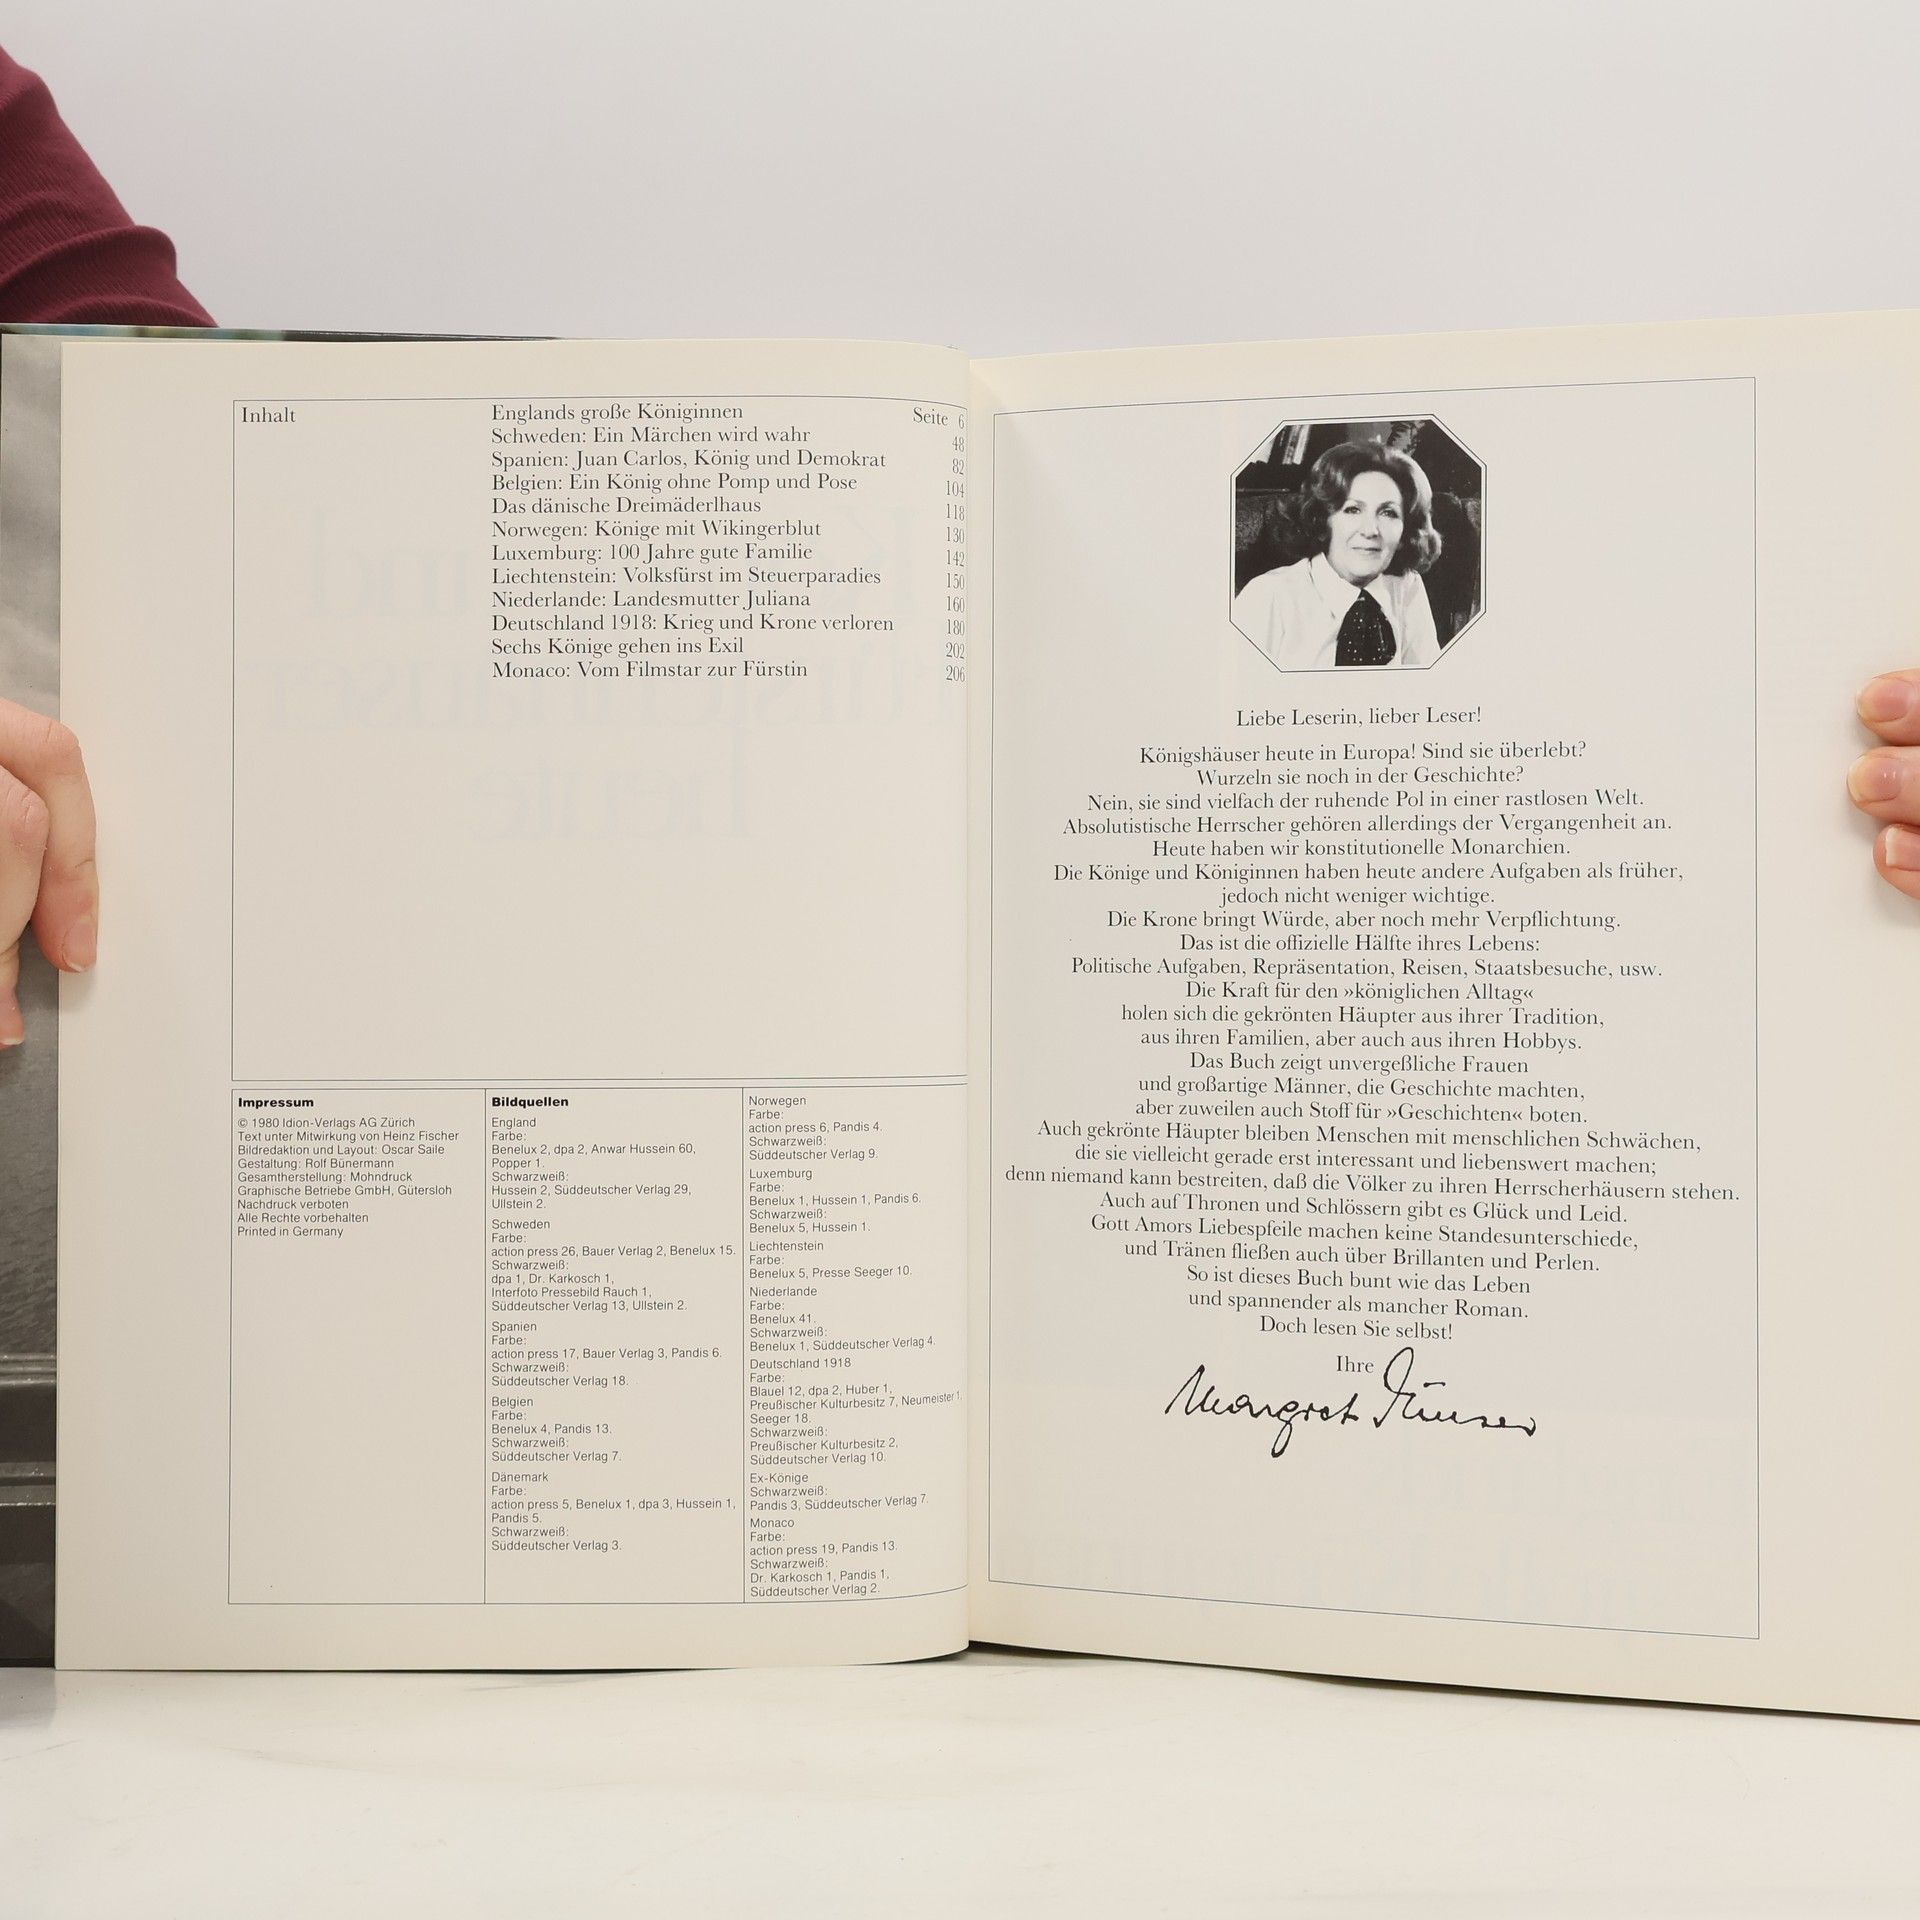 Inhalt
Englands große Königinnen Seite 6
Schweden: Ein Märchen wird wahr 48
Spanien: Juan Carlos, König und Demokrat 82
Belgien: Ein König ohne Pomp und Pose 104
Das dänische Dreimäderlhaus 118
Norwegen: Könige mit Wikingerblut 130
Luxemburg: 100 Jahre gute Familie 142
Liechtenstein: Volksfürst im Steuerparadies 150
Niederlande: Landesmutter Juliana 160
Deutschland 1918: Krieg und Krone verloren 180
Sechs Könige gehen ins Exil 202
Monaco: Vom Filmstar zur Fürstin 206
Impressum
© 1980 Idion-Verlags AG Zürich
Text unter Mitwirkung von Heinz Fischer
Bildredaktion und Layout: Oscar Saile
Gestaltung: Rolf Bünermann
Gesamtherstellung: Mohndruck
Graphische Betriebe GmbH, Gütersloh
Nachdruck verboten
Alle Rechte vorbehalten
Printed in Germany
Bildquellen
England
Farbe:
Benelux 2, dpa 2, Anwar Hussein 60,
Popper 1.
Schwarzweiß:
Hussein 2, Süddeutscher Verlag 29,
Ullstein 2.
Schweden
Farbe:
action press 26, Bauer Verlag 2, Benelux 15.
Schwarzweiß:
dpa 1, Dr. Karkosch 1,
Interfoto Pressebild Rauch 1,
Süddeutscher Verlag 13, Ullstein 2.
Spanien
Farbe:
action press 17, Bauer Verlag 3, Pandis 6.
Schwarzweiß:
Süddeutscher Verlag 18.
Belgien
Farbe:
Benelux 4, Pandis 13.
Schwarzweiß:
Süddeutscher Verlag 7.
Dänemark
Farbe:
action press 5, Benelux 1, dpa 3, Hussein 1,
Pandis 5.
Schwarzweiß:
Süddeutscher Verlag 3.
Norwegen
Farbe:
action press 6, Pandis 4.
Schwarzweiß:
Süddeutscher Verlag 9.
Luxemburg
Farbe:
Benelux 1, Hussein 1, Pandis 6.
Schwarzweiß:
Benelux 5, Hussein 1.
Liechtenstein
Farbe:
Benelux 5, Presse Seeger 10.
Niederlande
Farbe:
Benelux 41.
Schwarzweiß:
Benelux 1, Süddeutscher Verlag 4.
Deutschland 1918
Farbe:
Blauel 12, dpa 2, Huber 1,
Preußischer Kulturbesitz 7, Neumeister 1.
Seeger 18.
Schwarzweiß:
Preußischer Kulturbesitz 2,
Süddeutscher Verlag 10.
Ex-Könige
Schwarzweiß:
Pandis 3, Süddeutscher Verlag 7.
Monaco
Farbe:
action press 19, Pandis 13.
Schwarzweiß:
Dr. Karkosch 1, Pandis 1,
Süddeutscher Verlag 2.
Liebe Leserin, lieber Leser!
Königshäuser heute in Europa! Sind sie überlebt?
Wurzeln sie noch in der Geschichte?
Nein, sie sind vielfach der ruhende Pol in einer rastlosen Welt.
Absolutistische Herrscher gehören allerdings der Vergangenheit an.
Heute haben wir konstitutionelle Monarchien.
Die Könige und Königinnen haben heute andere Aufgaben als früher,
jedoch nicht weniger wichtige.
Die Krone bringt Würde, aber noch mehr Verpflichtung.
Das ist die offizielle Hälfte ihres Lebens:
Politische Aufgaben, Repräsentation, Reisen, Staatsbesuche, usw.
Die Kraft für den »königlichen Alltag«
holen sich die gekrönten Häupter aus ihrer Tradition,
aus ihren Familien, aber auch aus ihren Hobbys.
Das Buch zeigt unvergeßliche Frauen
und großartige Männer, die Geschichte machten,
aber zuweilen auch Stoff für »Geschichten« boten.
Auch gekrönte Häupter bleiben Menschen mit menschlichen Schwächen,
die sie vielleicht gerade erst interessant und liebenswert machen;
denn niemand kann bestreiten, daß die Völker zu ihren Herrscherhäusern stehen.
Auch auf Thronen und Schlössern gibt es Glück und Leid.
Gott Amors Liebespfeile machen keine Standesunterschiede,
und Tränen fließen auch über Brillanten und Perlen.
So ist dieses Buch bunt wie das Leben
und spannender als mancher Roman.
Doch lesen Sie selbst!
Ihre
Margret